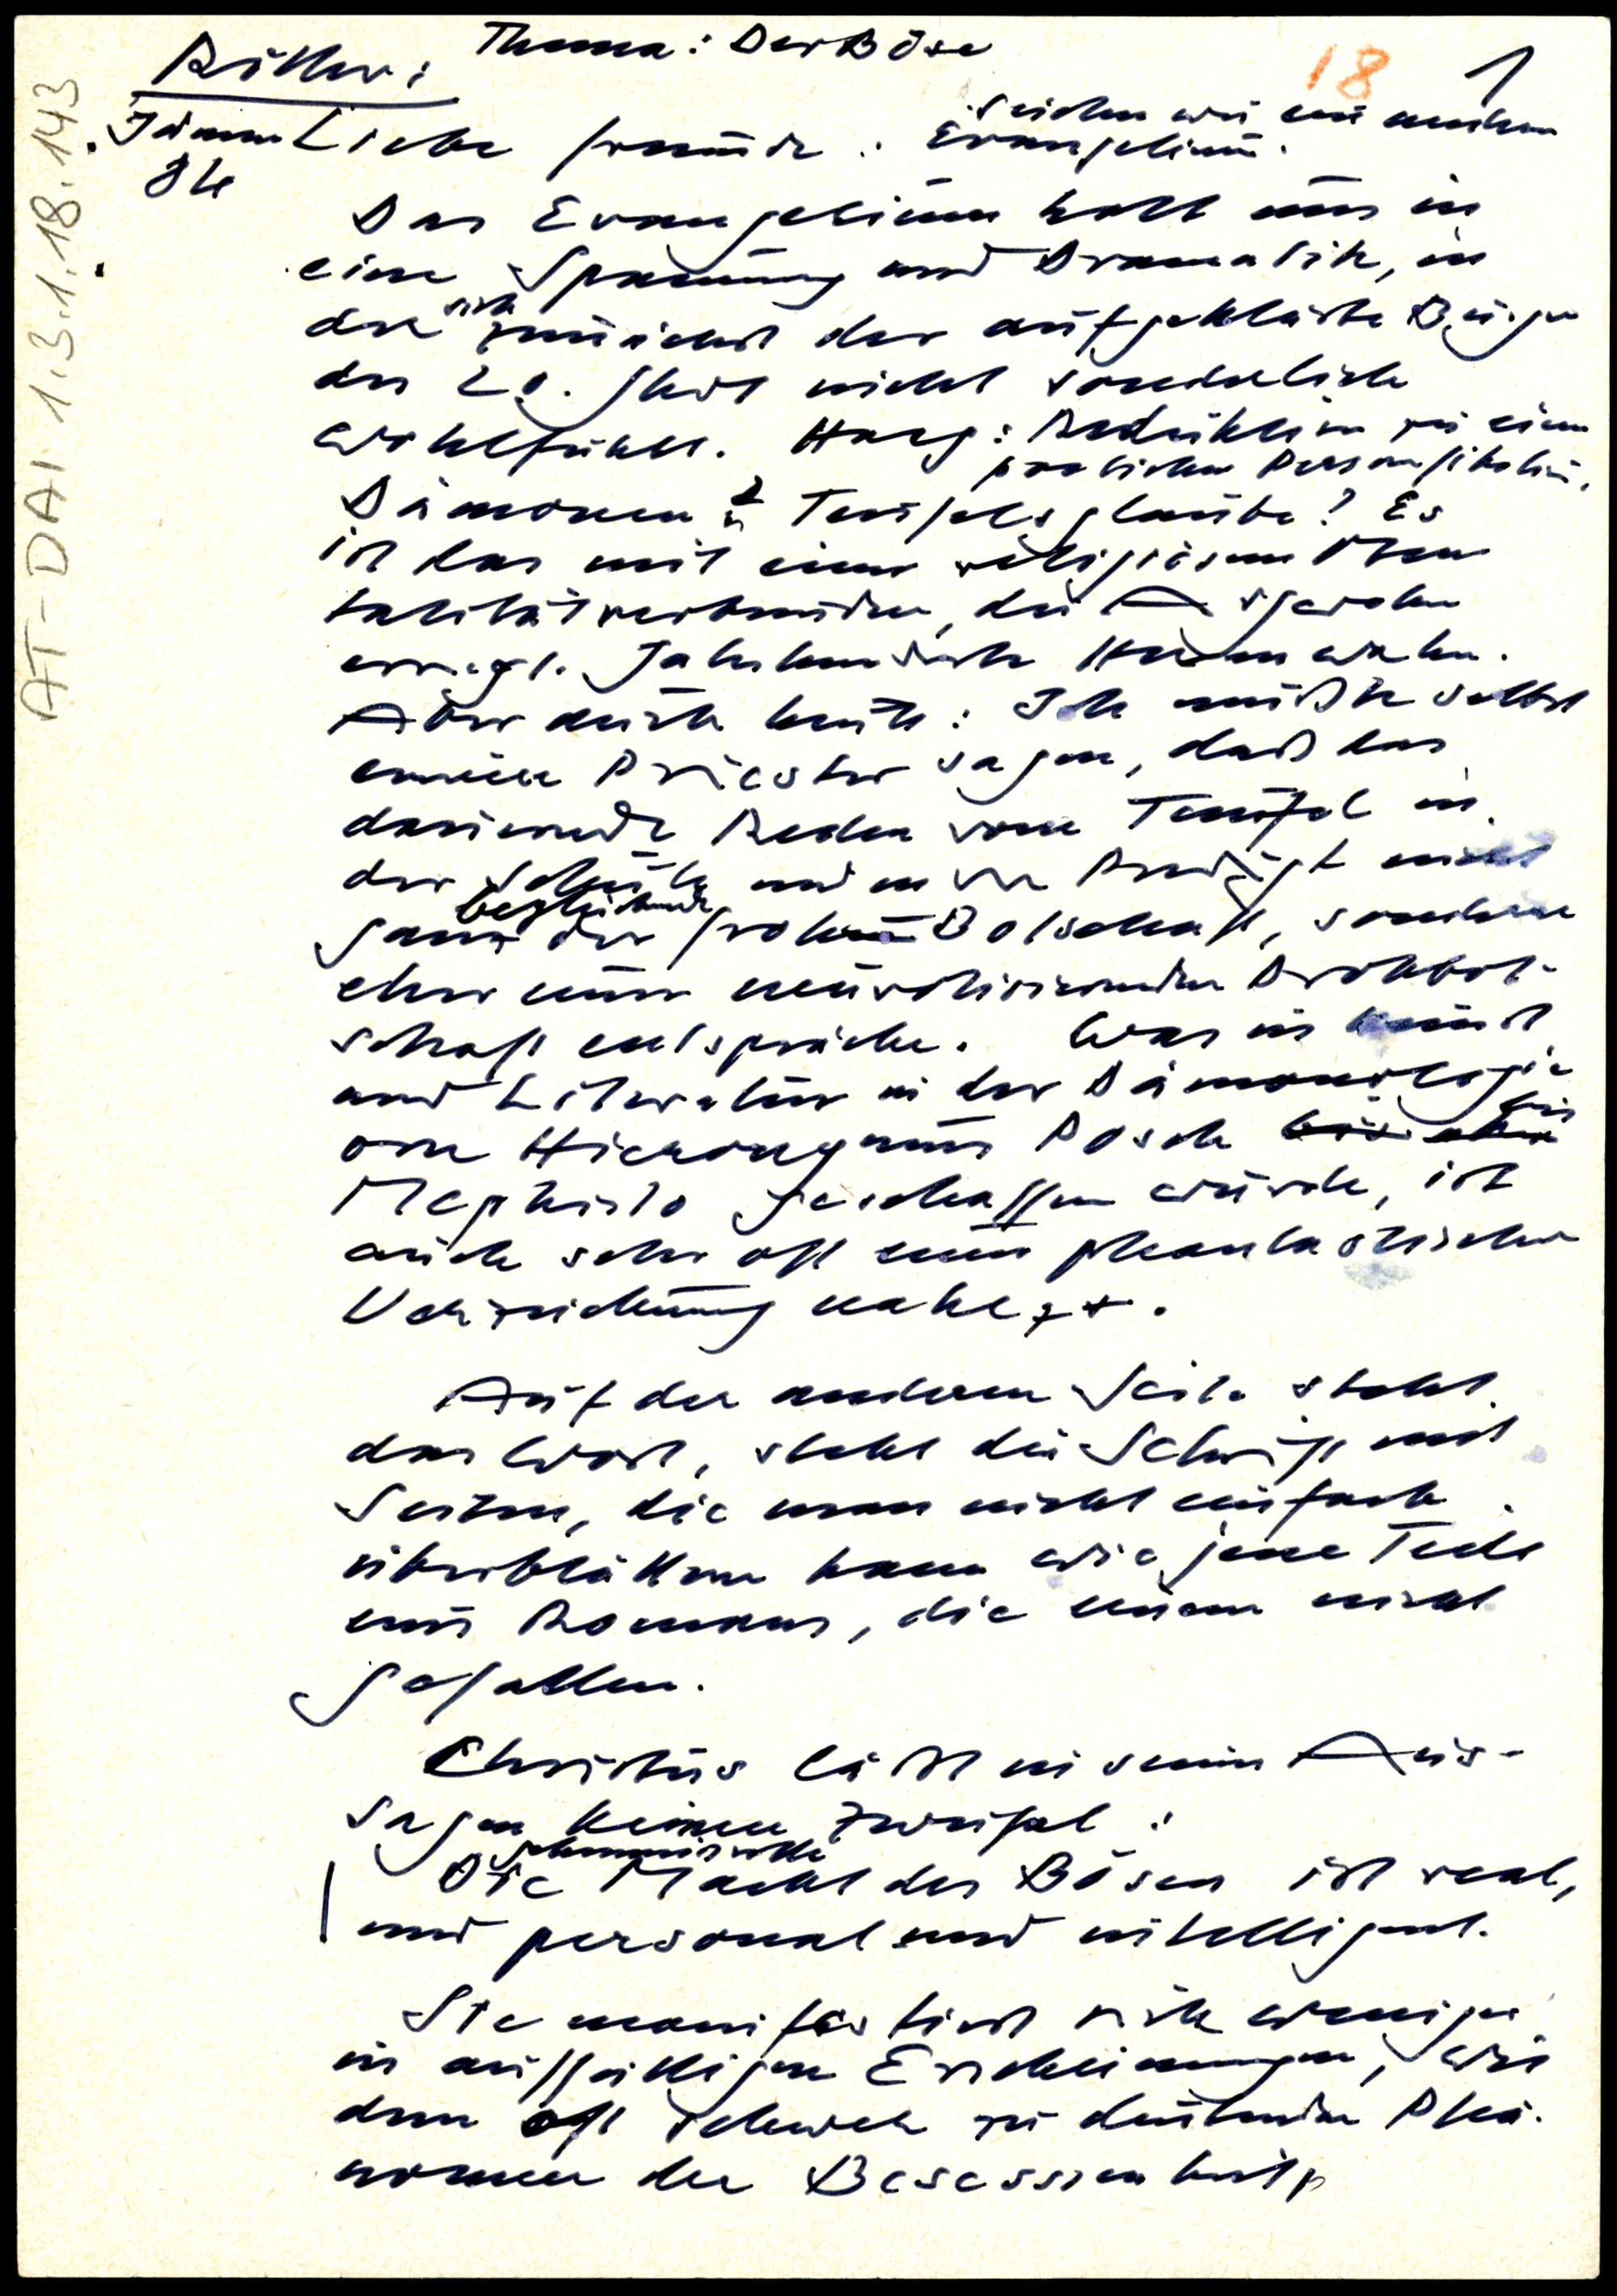 Thema: Der Böse
18 1
AT-DAI 1.3.1.18.143
Liebe Freunde.
Evangelium.
Das Evangelium holt uns in
eine Spannung und Dramatik, in
der sich zunächst der aufgeklärte Bürger
des 20. Jhdt nicht sonderlich
wohlfühlt. Haag: Reduktion zu einer
poetischen Personifikation.
Dämonen u Teufelsglaube? Es
ist das mit einer religiösen Men
talität verbunden, die
Jahrhunderte Hexenwahn.
Aber auch heute: Ich müßte selbst
Priester sagen, daß das
dauernde Reden vom Teufel in
der Schule und in der Predigt nicht
ganz der beglückenden frohen Botschaft, sondern
eher einer neurotisierenden Drohbot-
schaft entspräche. Was in Kunst
und Literatur in der Dämonologie
von Hieronymus Bosch bis
Mephisto geschaffen wurde, ist
auch sehr oft einer phantastischen
Verzeichnung nahe.
Auf der anderen Seite steht
das Wort, steht die Schrift mit
Seiten, die man nicht einfach
überblättern kann wie jene Teile
eines Romans, die einem nicht
gefallen.
Christus läßt in seinen Aus-
sagen keinen Zweifel:
Die geheimnisvolle Macht des Bösen ist real,
und personal und intelligent.
Sie manifestiert sich weniger
in auffälligen Erscheinungen, wie
den oft schwer zu deutenden Phä-
nomen der Besessenheit,